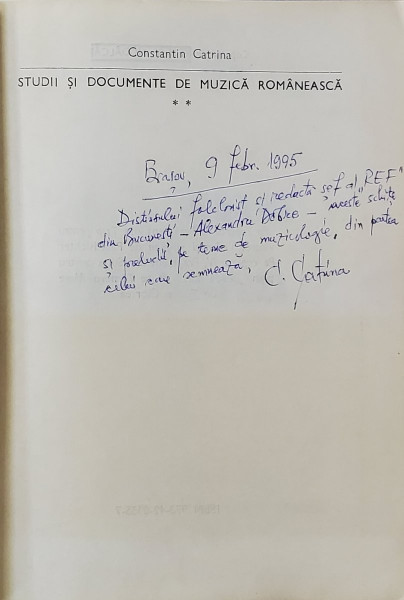 Constantin Catrina
STUDII ȘI DOCUMENTE DE MUZICĂ ROMÂNEASCĂ
* *
Brașov, 9 febr. 1995
Distinsului folclorist și redactor șef al „REF"
din București – Alexandru Dobre – aceste schițe
și, pe teme de muzicologie, din partea
celui care semnează, C. Catrina